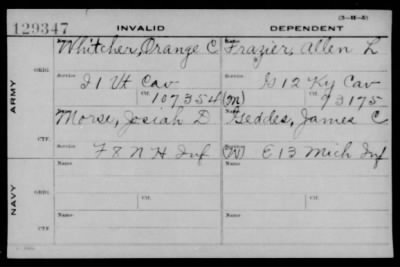 (3-M-5)
129347 INVALID DEPENDENT
Name Name
Whitcher, Orange C Frazier, Allen L
ARMY ORIG. Service Service
I 1 Vt Cav G 12 Ky Cav
Ctf. 107354 (M) Ctf. 73175
Name Name
Morse, Josiah D. Geddes, James C
CTF. Service Service
F 8 N H Inf (W) E 13 Mich Inf
Name Name
NAVY ORIG. Service Service
Ctf. Ctf.
Name Name
CTF. Service Service